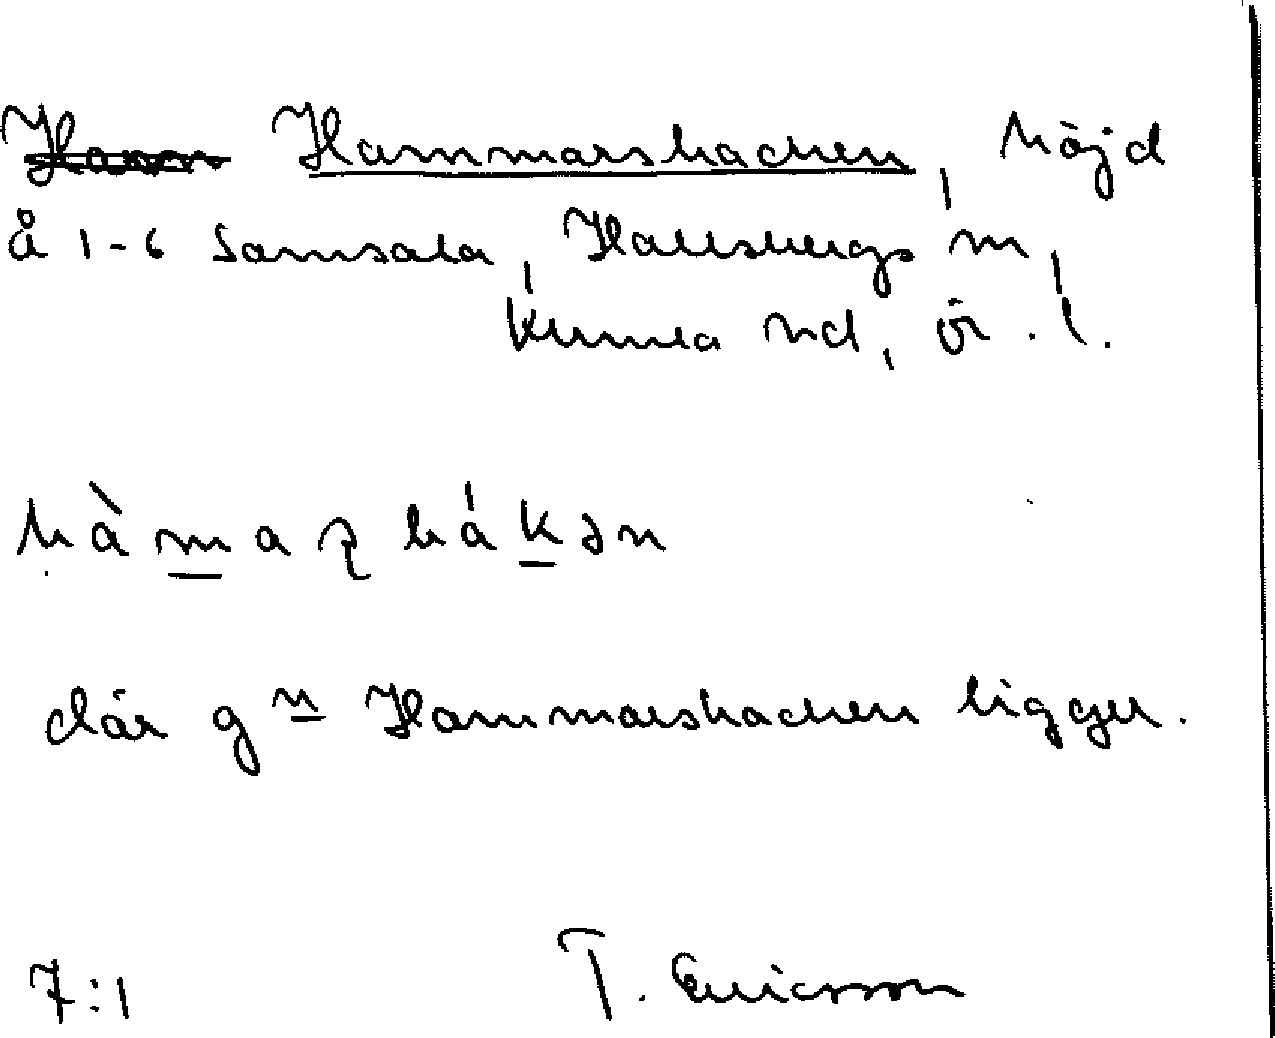 Hammarsbacken, höjd
å 1-6 Samsala, Hallsbergs sn,
Kumla hd, Ör. l.
hàmaʂbákən
där gn Hammarsbacken ligger.
7:1 T. Ericsson